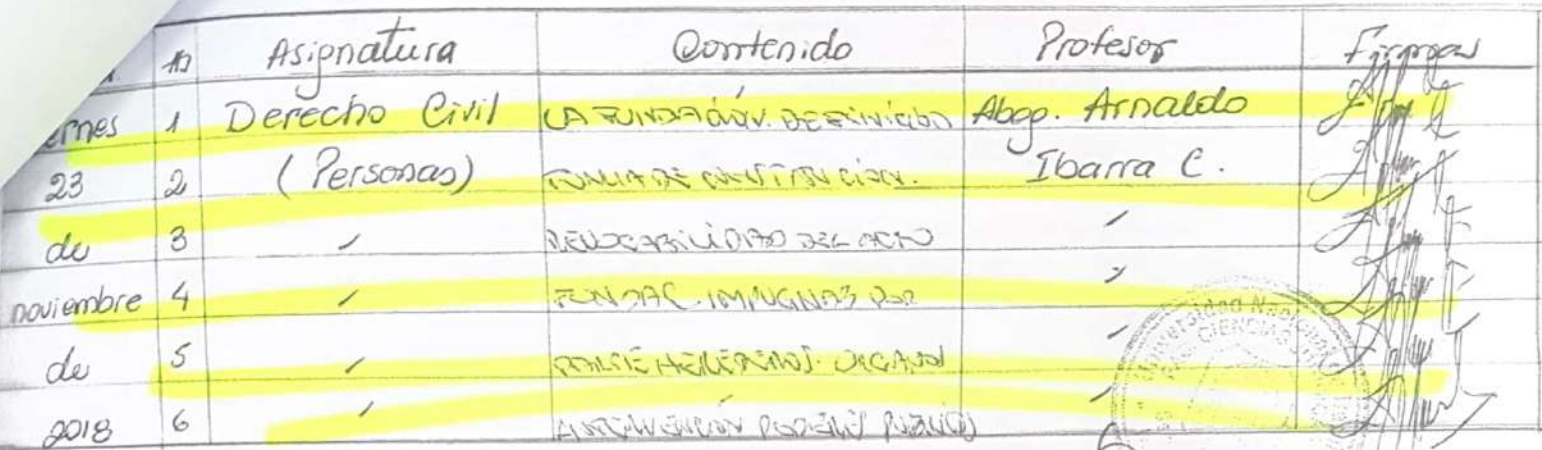 Nº Asignatura Contenido Profesor Firmas
ernes 1 Derecho Civil LA FUNDACIÓN. DEFINICIÓN Abog. Arnaldo
23 2 (Personas) FORMA DE CONSTITUCIÓN. Ibarra C.
de 3 REVOCABILIDAD DEL ACTO
noviembre 4 FUNDAC. POR
de 5 ORGANOS
2018 6 INTERVENCIÓN PODERES PUBLICOS